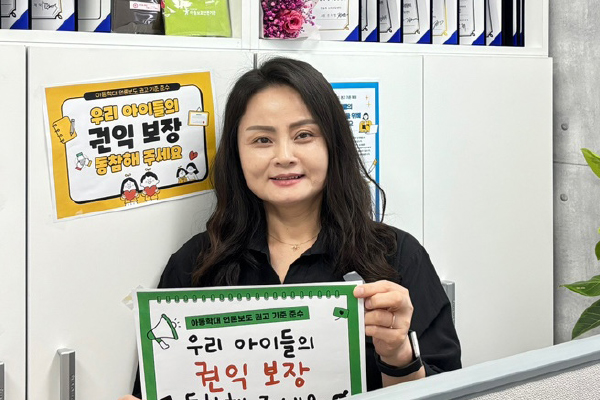 아동학대 언론보도 권고 기준 준수
우리 아이들의
권익 보장
동참해 주세요
아동학대 언론보도 권고 기준 준수
우리 아이들의
권익 보장
동참해 주세요